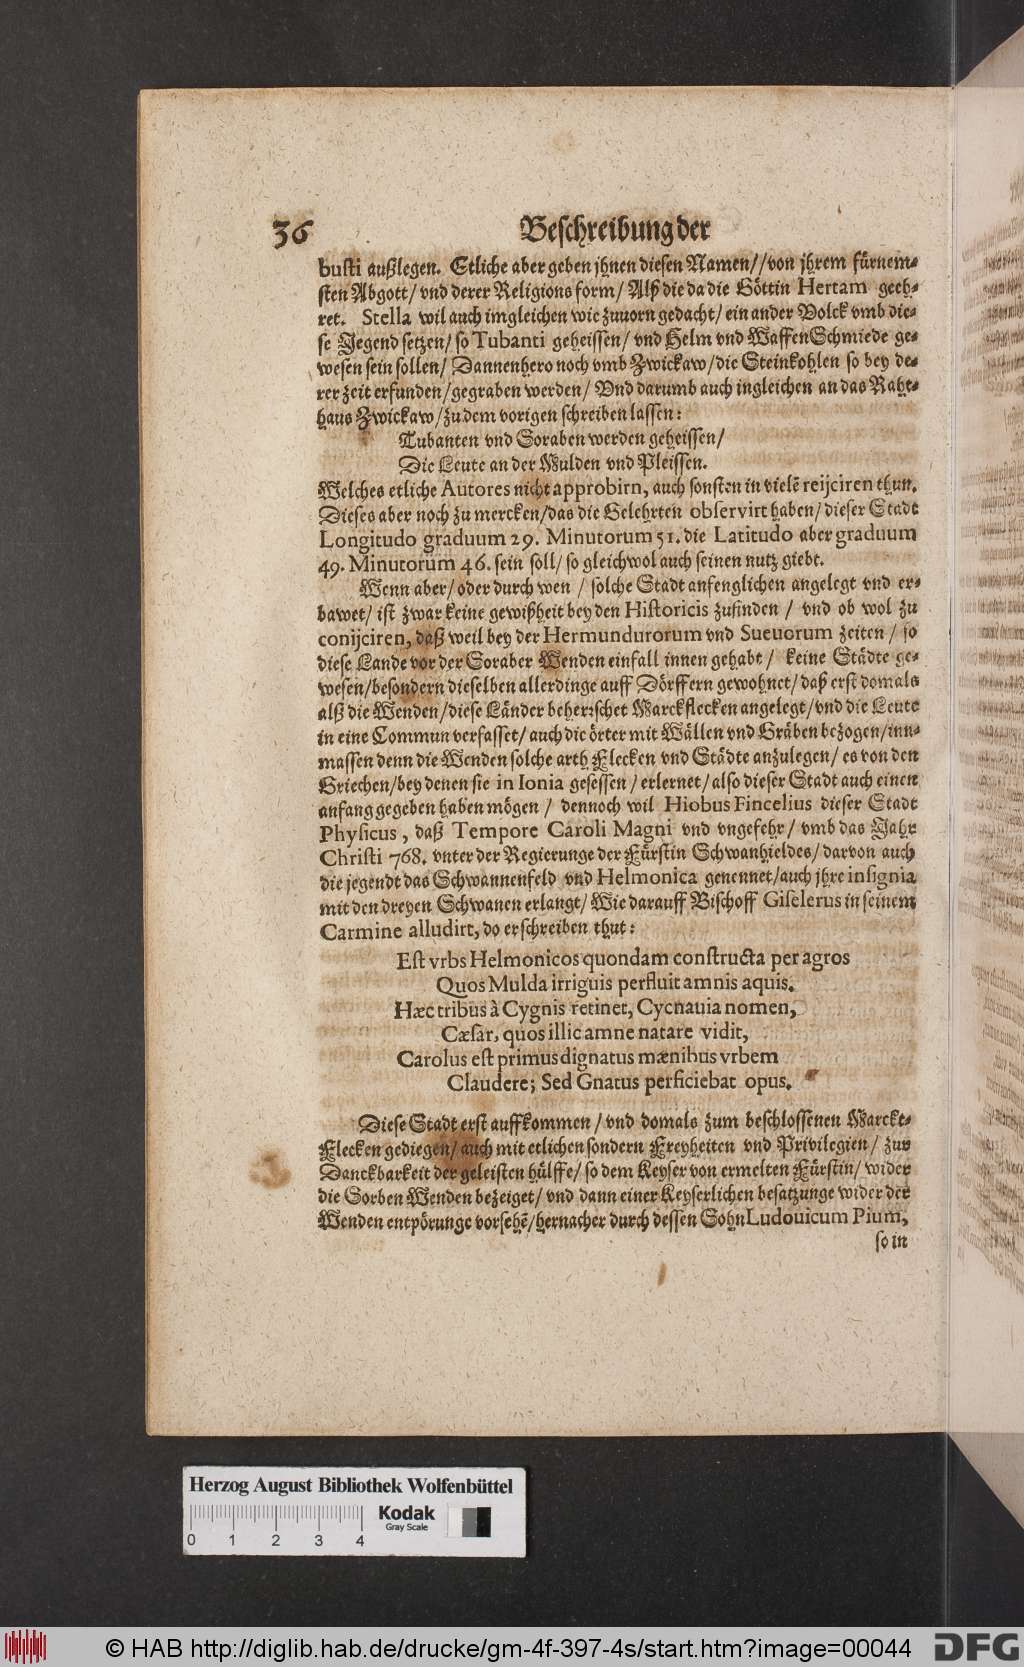 36 Beschreibung der
busti außlegen. Etliche aber geben jhnen diesen Namen//von jhrem fürnem-
sten Abgott/ vnd derer Religions form/ Alß die da die Göttin Hertam geeh-
ret. Stella wil auch imgleichen wie zuuorn gedacht/ ein ander Volck vmb die-
se Jegend setzen/ so Tubanti geheissen/ vnd Helm vnd WaffenSchmiede ge-
wesen sein sollen/ Dannenhero noch vmb Zwickaw/die Steinkohlen so bey de-
rer zeit erfunden/gegraben werden/ Vnd darumb auch ingleichen an das Raht-
haus Zwickaw/zu dem vorigen schreiben lassen:
Tubanten vnd Soraben werden geheissen/
Die Leute an der Mulden vnd Pleissen.
Welches etliche Autores nicht approbirn, auch sonsten in vielē reijciren thun.
Dieses aber noch zu mercken/das die Gelehrten observirt haben/ dieser Stadt
Longitudo graduum 29. Minutorum 51. die Latitudo aber graduum
49. Minutorum 46. sein soll/ so gleichwol auch seinen nutz giebt.
Wenn aber/ oder durch wen / solche Stadt anfenglichen angelegt vnd er-
bawet/ ist zwar keine gewißheit bey den Historicis zufinden / vnd ob wol zu
conijciren, daß weil bey der Hermundurorum vnd Sueuorum zeiten / so
diese Lande vor der Soraber Wenden einfall innen gehabt / keine Städte ge-
wesen/besondern dieselben allerdinge auff Dörffern gewohnet/daß erst domals
alß die Wenden/diese Länder beherrschet Marckflecken angelegt/vnd die Leute
in eine Commun verfasset/ auch die örter mit Wällen vnd Gräben bezogen/inn-
massen denn die Wenden solche arth Flecken vnd Städte anzulegen/ es von den
Griechen/bey denen sie in Ionia gesessen / erlernet/also dieser Stadt auch einen
anfang gegeben haben mögen / dennoch wil Hiobus Fincelius dieser Stadt
Physicus, daß Tempore Caroli Magni vnd vngefehr/ vmb das Jahr
Christi 768. vnter der Regierunge der Fürstin Schwanhieldes/darvon auch
die jegendt das Schwannenfeld vnd Helmonica genennet/auch jhre insignia
mit den dreyen Schwanen erlangt/ Wie darauff Bischoff Giselerus in seinem
Carmine alludirt, do er schreiben thut:
Est vrbs Helmonicos quondam constructa per agros
Quos Mulda irriguis perfluit amnis aquis.
Hæc tribus à Cygnis retinet, Cycnauia nomen,
Cæsar, quos illic amne natare vidit,
Carolus est primus dignatus mænibus vrbem
Claudere; Sed Gnatus perficiebat opus.
Diese Stadt erst auffkommen / vnd domals zum beschlossenen Marckt-
Flecken gediegen/ auch mit etlichen sondern Freyheiten vnd Privilegien / zur
Danckbarkeit der geleisten hülffe/ so dem Keyser von ermelten Fürstin/ wider
die Sorben Wenden bezeiget/ vnd dann einer Keyserlichen besatzunge wider der
Wenden entpörunge vorsehē/hernacher durch dessen Sohn Ludouicum Pium,
so in
Herzog August Bibliothek Wolfenbüttel
Kodak
Gray Scale
0 1 2 3 4
© HAB http://diglib.hab.de/drucke/gm-4f-397-4s/start.htm?image=00044
DFG